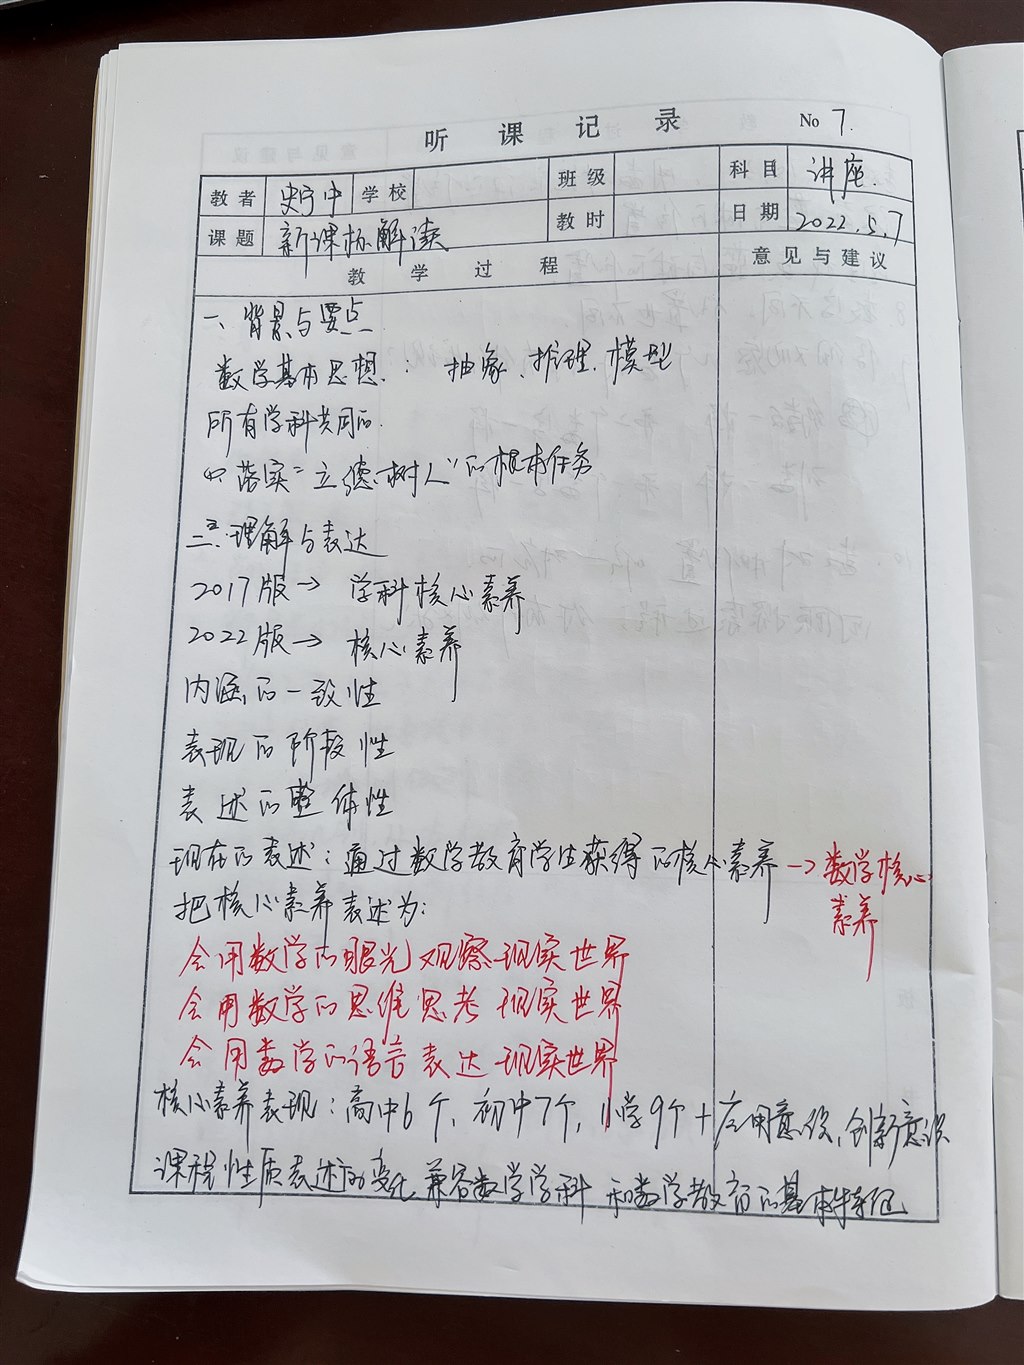 听课记录 No 7.
教者 史宁中 学校 班级 科目 讲座.
课题 新课标解读 教时 日期 2022.5.7
教学过程 意见与建议
一、背景与要点
数学基本思想: 抽象、推理、模型
所有学科共同的.
落实"立德树人"的根本任务
三.理解与表达
2017版→ 学科核心素养
2022版→ 核心素养
内涵的一致性
表现的阶段性
表述的整体性
现在的表述:通过数学教育学生获得的核心素养→数学核心
素养
把核心素养表述为:
会用数学的眼光观察现实世界
会用数学的思维思考现实世界
会用数学的语言表达现实世界
核心素养表现:高中6个,初中7个,小学9个+应用意识,创新意识
课程性质表述的变化 兼容数学学科和数学教育的基本特征